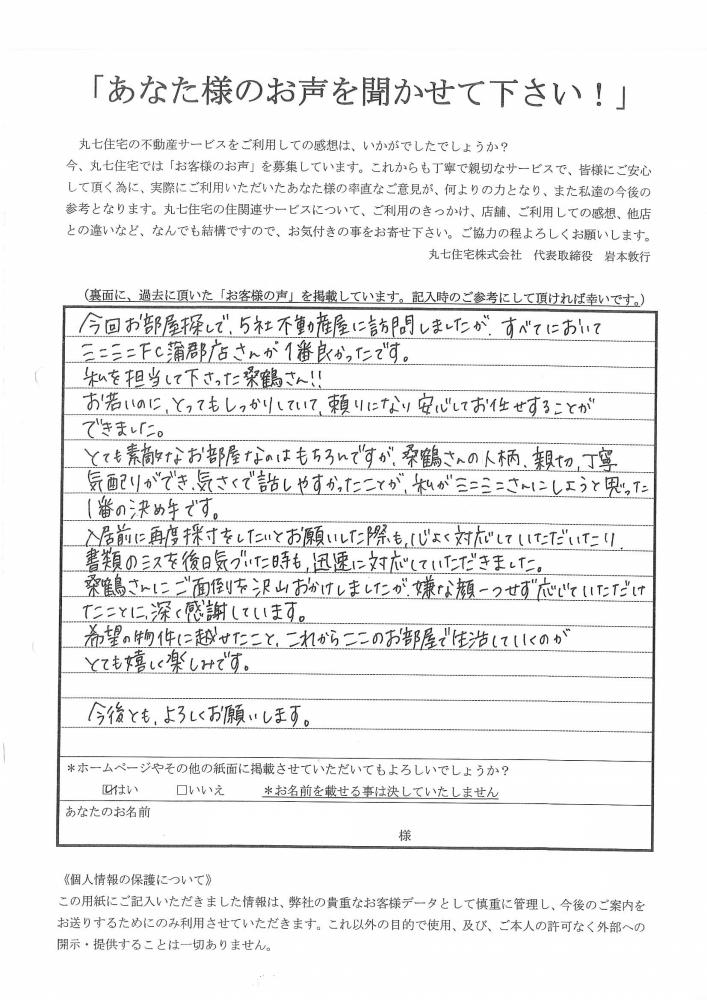 「あなた様のお声を聞かせて下さい！」
丸七住宅の不動産サービスをご利用しての感想は、いかがでしたでしょうか？
今、丸七住宅では「お客様のお声」を募集しています。これからも丁寧で親切なサービスで、皆様にご安心
して頂く為に、実際にご利用いただいたあなた様の率直なご意見が、何よりの力となり、また私達の今後の
参考となります。丸七住宅の住関連サービスについて、ご利用のきっかけ、店舗、ご利用しての感想、他店
との違いなど、なんでも結構ですので、お気付きの事をお寄せ下さい。ご協力の程よろしくお願いします。
丸七住宅株式会社　代表取締役　岩本敦行
（裏面に、過去に頂いた「お客様の声」を掲載しています。記入時のご参考にして頂ければ幸いです。）
今回お部屋探しで、5社不動産屋に訪問しましたが、すべてにおいて
ミニミニFC蒲郡店さんが1番良かったです。
私を担当して下さった桑鶴さん!!
お若いのに、とってもしっかりしていて、頼りになり安心してお任せすることが
できました。
とても素敵なお部屋なのはもちろんですが、桑鶴さんの人柄、親切、丁寧
気配りができ、気さくで話しやすかったことが、私がミニミニさんにしようと思った
1番の決め手です。
入居前に再度採寸をしたいとお願いした際も、心よく対応していただいたり、
書類のミスを後日気づいた時も、迅速に対応していただきました。
桑鶴さんにご面倒を沢山おかけしましたが、嫌な顔一つせず応じていただけ
たことに、深く感謝しています。
希望の物件に越せたこと、これからここのお部屋で生活していくのが
とても嬉しく楽しみです。
今後とも、よろしくお願いします。
＊ホームページやその他の紙面に掲載させていただいてもよろしいでしょうか？
☑はい　□いいえ　＊お名前を載せる事は決していたしません
あなたのお名前
様
《個人情報の保護について》
この用紙にご記入いただきました情報は、弊社の貴重なお客様データとして慎重に管理し、今後のご案内を
お送りするためにのみ利用させていただきます。これ以外の目的で使用、及び、ご本人の許可なく外部への
開示・提供することは一切ありません。